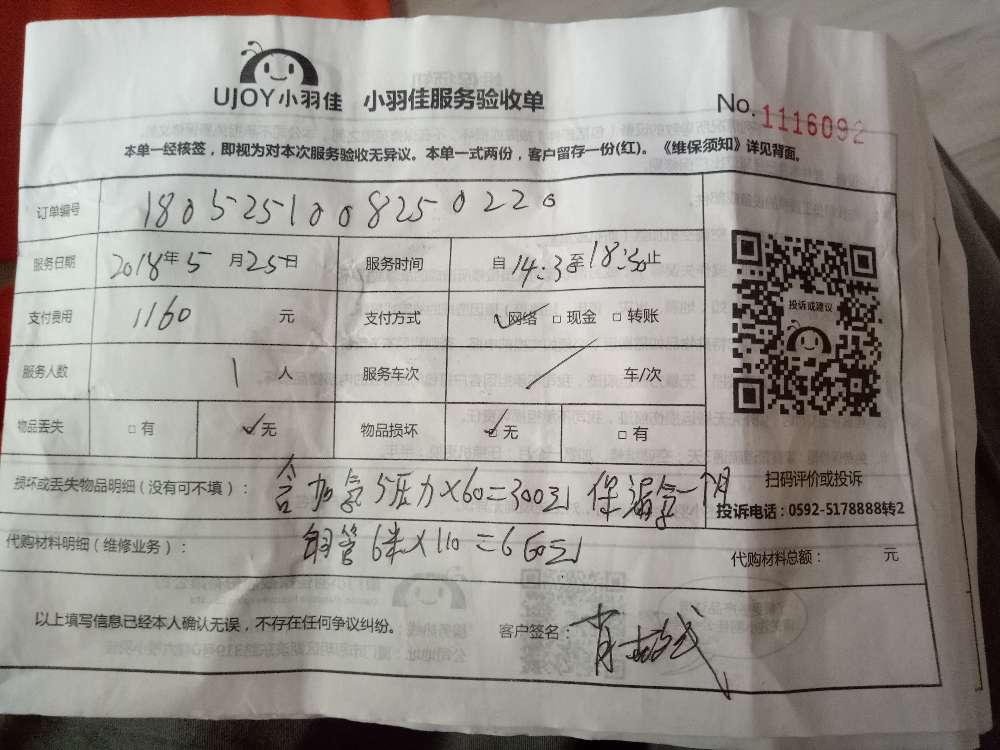 UJOY小羽佳 小羽佳服务验收单
No. 1116092
本单一经核签，即视为对本次服务验收无异议。本单一式两份，客户留存一份(红)。《维保须知》详见背面。
订单编号 1805251008250220
服务日期 2018年5月25日 服务时间 自14:30至18:30止
支付费用 1160 元 支付方式 ☑网络 □现金 □转账
服务人数 1 人 服务车次 / 车/次
物品丢失 □有 ☑无 物品损坏 ☑无 □有
投诉或建议
扫码评价或投诉
投诉电话：0592-5178888转2
损坏或丢失物品明细（没有可不填）： 含加氟5压力×60=300元 保漏氟一个月
代购材料明细（维修业务）： 铜管6米×110=660元
代购材料总额： 元
以上填写信息已经本人确认无误，不存在任何争议纠纷。 客户签名：